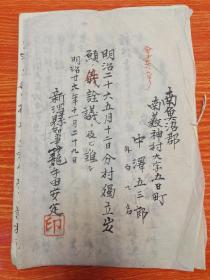 南魚沼郡
南義神村大字五日町
中澤五三郎
明治二十六五月十二日分村獨立出
願ノ儀詮議ニ及ヒ難シ
明治廿六年十一月二十九日
新潟縣知事籠手田安定
印